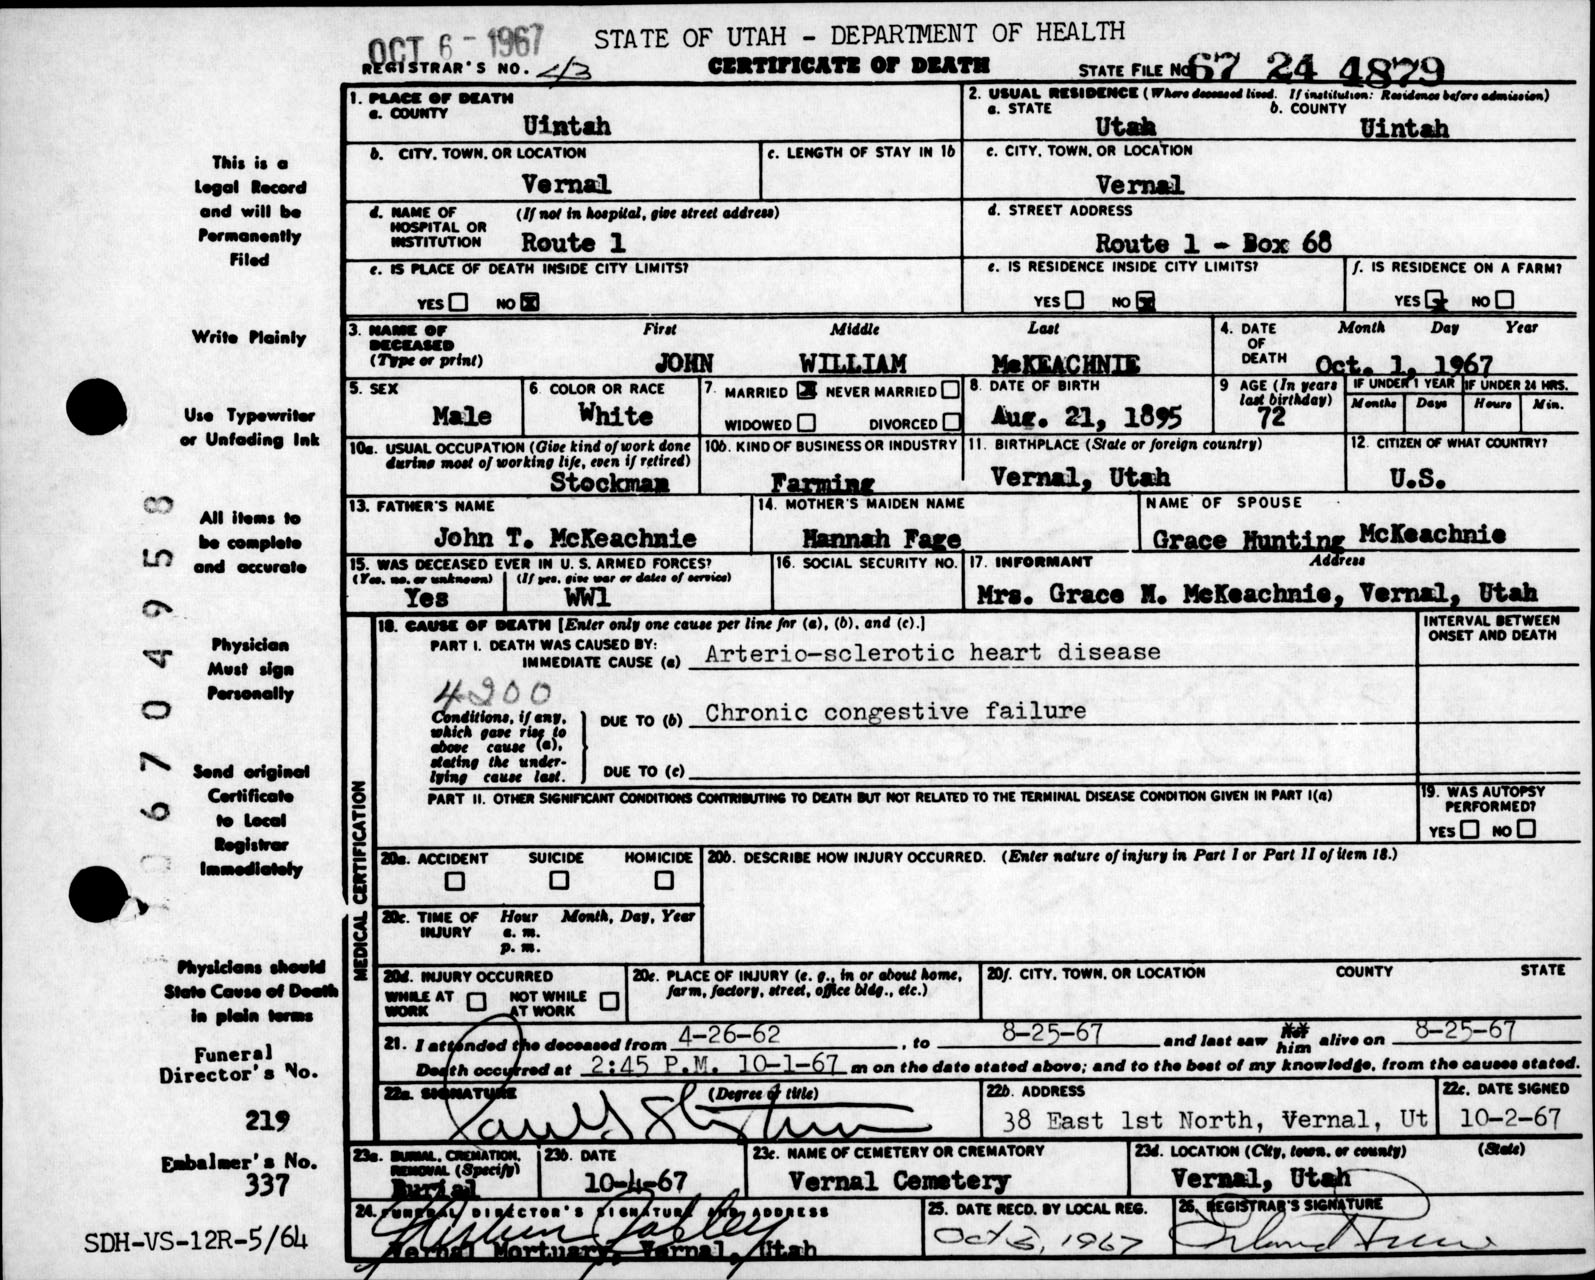 OCT 6 - 1967
STATE OF UTAH - DEPARTMENT OF HEALTH
REGISTRAR'S NO. 43
CERTIFICATE OF DEATH
STATE FILE NO. 67 24 4879
This is a
Legal Record
and will be
Permanently
Filed
Write Plainly
Use Typewriter
or Unfading Ink
All items to
be complete
and accurate
Physician
Must sign
Personally
Send original
Certificate
to Local
Registrar
Immediately
Physicians should
State Cause of Death
in plain terms
Funeral
Director's No.
219
Embalmer's No.
337
SDH-VS-12R-5/64
067049558
1. PLACE OF DEATH
a. COUNTY
Uintah
2. USUAL RESIDENCE (Where deceased lived. If institution: Residence before admission)
a. STATE b. COUNTY
Utah Uintah
b. CITY, TOWN, OR LOCATION
Vernal
c. LENGTH OF STAY IN 1b
c. CITY, TOWN, OR LOCATION
Vernal
d. NAME OF (If not in hospital, give street address)
HOSPITAL OR
INSTITUTION Route 1
d. STREET ADDRESS
Route 1 - Box 68
e. IS PLACE OF DEATH INSIDE CITY LIMITS?
YES NO X
e. IS RESIDENCE INSIDE CITY LIMITS?
YES NO X
f. IS RESIDENCE ON A FARM?
YES X NO
3. NAME OF First Middle Last
DECEASED
(Type or print) JOHN WILLIAM McKEACHNIE
4. DATE Month Day Year
OF
DEATH Oct. 1, 1967
5. SEX
Male
6. COLOR OR RACE
White
7. MARRIED X NEVER MARRIED
WIDOWED DIVORCED
8. DATE OF BIRTH
Aug. 21, 1895
9 AGE (In years
last birthday)
72
IF UNDER 1 YEAR IF UNDER 24 HRS.
Months Days Hours Min.
10a. USUAL OCCUPATION (Give kind of work done
during most of working life, even if retired)
Stockman
10b. KIND OF BUSINESS OR INDUSTRY
Farming
11. BIRTHPLACE (State or foreign country)
Vernal, Utah
12. CITIZEN OF WHAT COUNTRY?
U.S.
13. FATHER'S NAME
John T. McKeachnie
14. MOTHER'S MAIDEN NAME
Hannah Fage
NAME OF SPOUSE
Grace Hunting McKeachnie
15. WAS DECEASED EVER IN U. S. ARMED FORCES?
(Yes, no, or unknown) (If yes, give war or dates of service)
Yes WW1
16. SOCIAL SECURITY NO.
17. INFORMANT Address
Mrs. Grace M. McKeachnie, Vernal, Utah
MEDICAL CERTIFICATION
18. CAUSE OF DEATH [Enter only one cause per line for (a), (b), and (c).]
INTERVAL BETWEEN
ONSET AND DEATH
PART I. DEATH WAS CAUSED BY:
IMMEDIATE CAUSE (a) Arterio-sclerotic heart disease
4200
Conditions, if any,
which gave rise to
above cause (a),
stating the under-
lying cause last.
DUE TO (b) Chronic congestive failure
DUE TO (c)
PART II. OTHER SIGNIFICANT CONDITIONS CONTRIBUTING TO DEATH BUT NOT RELATED TO THE TERMINAL DISEASE CONDITION GIVEN IN PART I(a)
19. WAS AUTOPSY
PERFORMED?
YES NO
20a. ACCIDENT SUICIDE HOMICIDE
20b. DESCRIBE HOW INJURY OCCURRED. (Enter nature of injury in Part I or Part II of item 18.)
20c. TIME OF Hour Month, Day, Year
INJURY a. m.
p. m.
20d. INJURY OCCURRED
WHILE AT NOT WHILE
WORK AT WORK
20e. PLACE OF INJURY (e. g., in or about home,
farm, factory, street, office bldg., etc.)
20f. CITY, TOWN, OR LOCATION COUNTY STATE
21. I attended the deceased from 4-26-62, to 8-25-67 and last saw him alive on 8-25-67
Death occurred at 2:45 P.M. 10-1-67 m on the date stated above; and to the best of my knowledge, from the causes stated.
22a. SIGNATURE (Degree or title)
22b. ADDRESS
38 East 1st North, Vernal, Ut
22c. DATE SIGNED
10-2-67
23a. BURIAL, CREMATION,
REMOVAL (Specify)
Burial
23b. DATE
10-4-67
23c. NAME OF CEMETERY OR CREMATORY
Vernal Cemetery
23d. LOCATION (City, town, or county) (State)
Vernal, Utah
24. FUNERAL DIRECTOR'S SIGNATURE AND ADDRESS
Vernal Mortuary, Vernal, Utah
25. DATE RECD. BY LOCAL REG.
Oct 3, 1967
26. REGISTRAR'S SIGNATURE